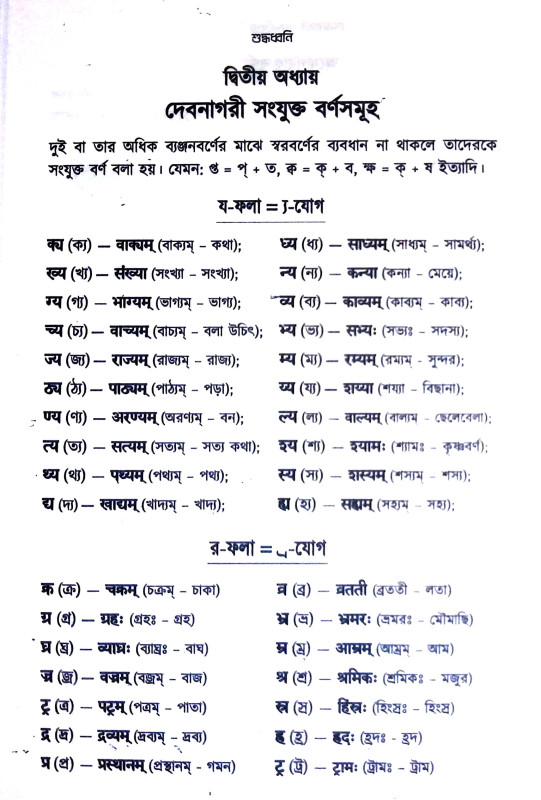 শুদ্ধধ্বনি
দ্বিতীয় অধ্যায়
দেবনাগরী সংযুক্ত বর্ণসমূহ
দুই বা তার অধিক ব্যঞ্জনবর্ণের মাঝে স্বরবর্ণের ব্যবধান না থাকলে তাদেরকে
সংযুক্ত বর্ণ বলা হয়। যেমন: প্ত = প্ + ত, ক্ব = ক্ + ব, ক্ষ = ক্ + ষ ইত্যাদি।
য-ফলা = ্য-যোগ
क्य (ক্য) – वाक्यम् (বাক্যম্ - কথা);
ख्य (খ্য) – संख्या (সংখ্যা - সংখ্যা);
ग्य (গ্য) – भाग्यम् (ভাগ্যম্ - ভাগ্য);
च्य (চ্য) – वाच्यम् (বাচ্যম্ - বলা উচিৎ);
ज्य (জ্য) – राज्यम् (রাজ্যম্ - রাজ্য);
ठ्य (ঠ্য) – पाठ्यम् (পাঠ্যম্ - পড়া);
ण्य (ণ্য) – अरण्यम् (অরণ্যম্ - বন);
त्य (ত্য) – सत्यम् (সত্যম্ - সত্য কথা);
थ्य (থ্য) – पथ्यम् (পথ্যম্ - পথ্য);
द्य (দ্য) – खाद्यम् (খাদ্যম্ - খাদ্য);
ध्य (ধ্য) – साध्यम् (সাধ্যম্ - সামর্থ্য);
न्य (ন্য) – कन्या (কন্যা - মেয়ে);
व्य (ব্য) – काव्यम् (কাব্যম্ - কাব্য);
भ्य (ভ্য) – सभ्यः (সভ্যঃ - সদস্য);
म्य (ম্য) – रम्यम् (রম্যম্ - সুন্দর);
य्य (য্য) – शय्या (শয্যা - বিছানা);
ल्य (ল্য) – वाल्यम् (বাল্যম্ - ছেলেবেলা);
श्य (শ্য) – श्यामः (শ্যামঃ - কৃষ্ণবর্ণ);
स्य (স্য) – शस्यम् (শস্যম্ - শস্য);
ह्य (হ্য) – सह्यम् (সহ্যম্ - সহ্য);
র-ফলা = ্র-যোগ
क्र (ক্র) – चक्रम् (চক্রম্ - চাকা)
ग्र (গ্র) – ग्रहः (গ্রহঃ - গ্রহ)
घ्र (ঘ্র) – व्याघ्रः (ব্যাঘ্রঃ - বাঘ)
ज्र (জ্র) – वज्रम् (বজ্রম্ - বাজ)
ट्र (ত্র) – पट्रम् (পত্রম্ - পাতা)
द्र (দ্র) – द्रव्यम् (দ্রব্যম্ - দ্রব্য)
प्र (প্র) – प्रस्थानम् (প্রস্থানম্ - গমন)
व्र (ব্র) – व्रतती (ব্রততী - লতা)
भ्र (ভ্র) – भ्रमरः (ভ্রমরঃ - মৌমাছি)
म्र (ম্র) – आम्रम् (আম্রম্ - আম)
श्र (শ্র) – श्रमिकः (শ্রমিকঃ - মজুর)
स्र (স্র) – हिंस्रः (হিংস্রঃ - হিংস্র)
ह्र (হ্র) – ह्रदः (হ্রদঃ - হ্রদ)
ट्र (ট্র) – ट्रामः (ট্রামঃ - ট্রাম)